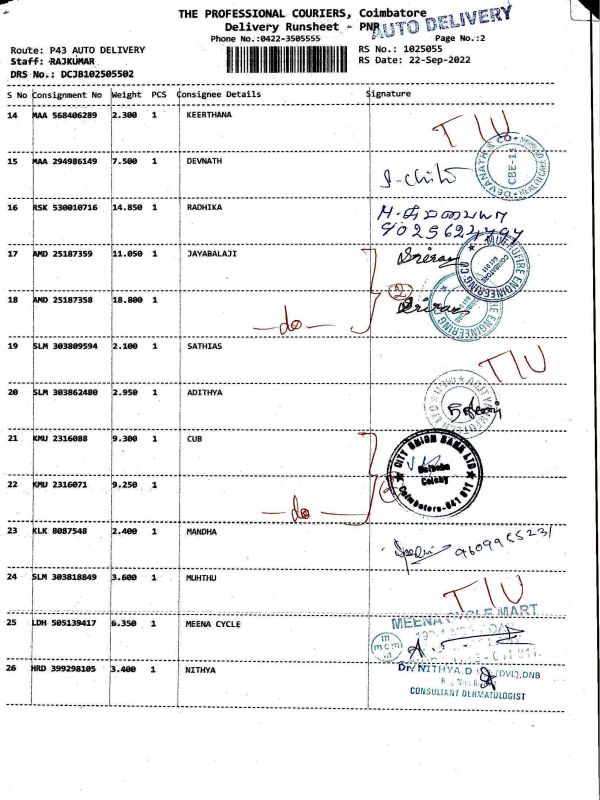 THE PROFESSIONAL COURIERS, Coimbatore
Delivery Runsheet - PNR
AUTO DELIVERY
Phone No.:0422-3505555
Page No.:2
Route: P43 AUTO DELIVERY
RS No.: 1025055
Staff: RAJKUMAR
RS Date: 22-Sep-2022
DRS No.: DCJB102505502
S No Consignment No Weight PCS Consignee Details Signature
14 MAA 568406289 2.300 1 KEERTHANA
T/U
15 MAA 294986149 7.500 1 DEVNATH
DEVANATH S CO
CBE-11
16 RSK 530010716 14.850 1 RADHIKA
17 AMD 25187359 11.050 1 JAYABALAJI
Sriram
MURUFIRE ENGINEERING CO
2
18 AMD 25187358 18.800 1
-do-
Sriram
19 SLM 303809594 2.100 1 SATHIAS
T/U
20 SLM 303862480 2.950 1 ADITHYA
21 KMU 2316088 9.300 1 CUB
CITY UNION BANK LTD
Colony
Coimbatore-641 011
22 KMU 2316071 9.250 1
-do-
23 KLK 8087548 2.400 1 MANDHA
24 SLM 303818849 3.600 1 MUHTHU
T/U
25 LDH 505139417 6.350 1 MEENA CYCLE
MEENA CYCLE MART
mcm
26 HRD 399298105 3.400 1 NITHYA
Dr. NITHYA.D (DVL),DNB
CONSULTANT DERMATOLOGIST